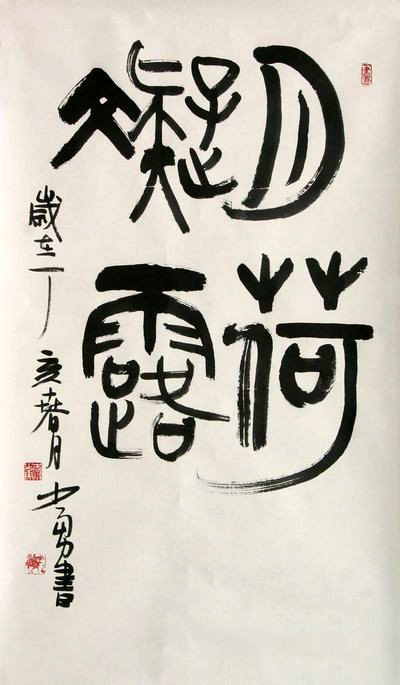 月荷
凝露
歲在丁亥春月少勇書